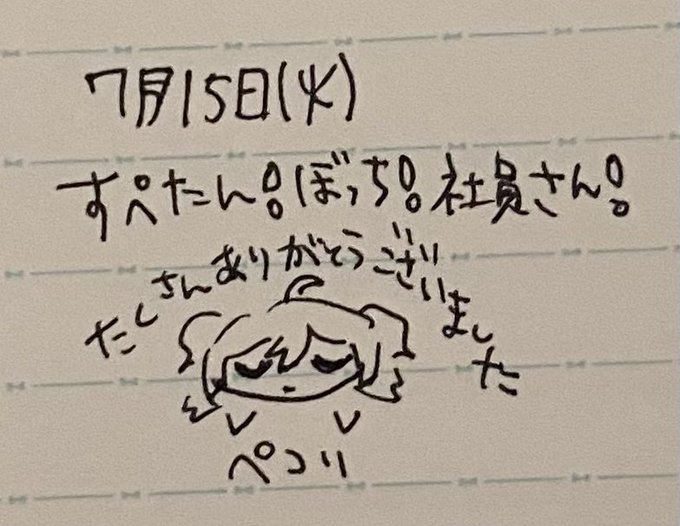 7月15日(火)
すぺたん!ぼっち!社員さん!
たくさんありがとうございました
ペコリ